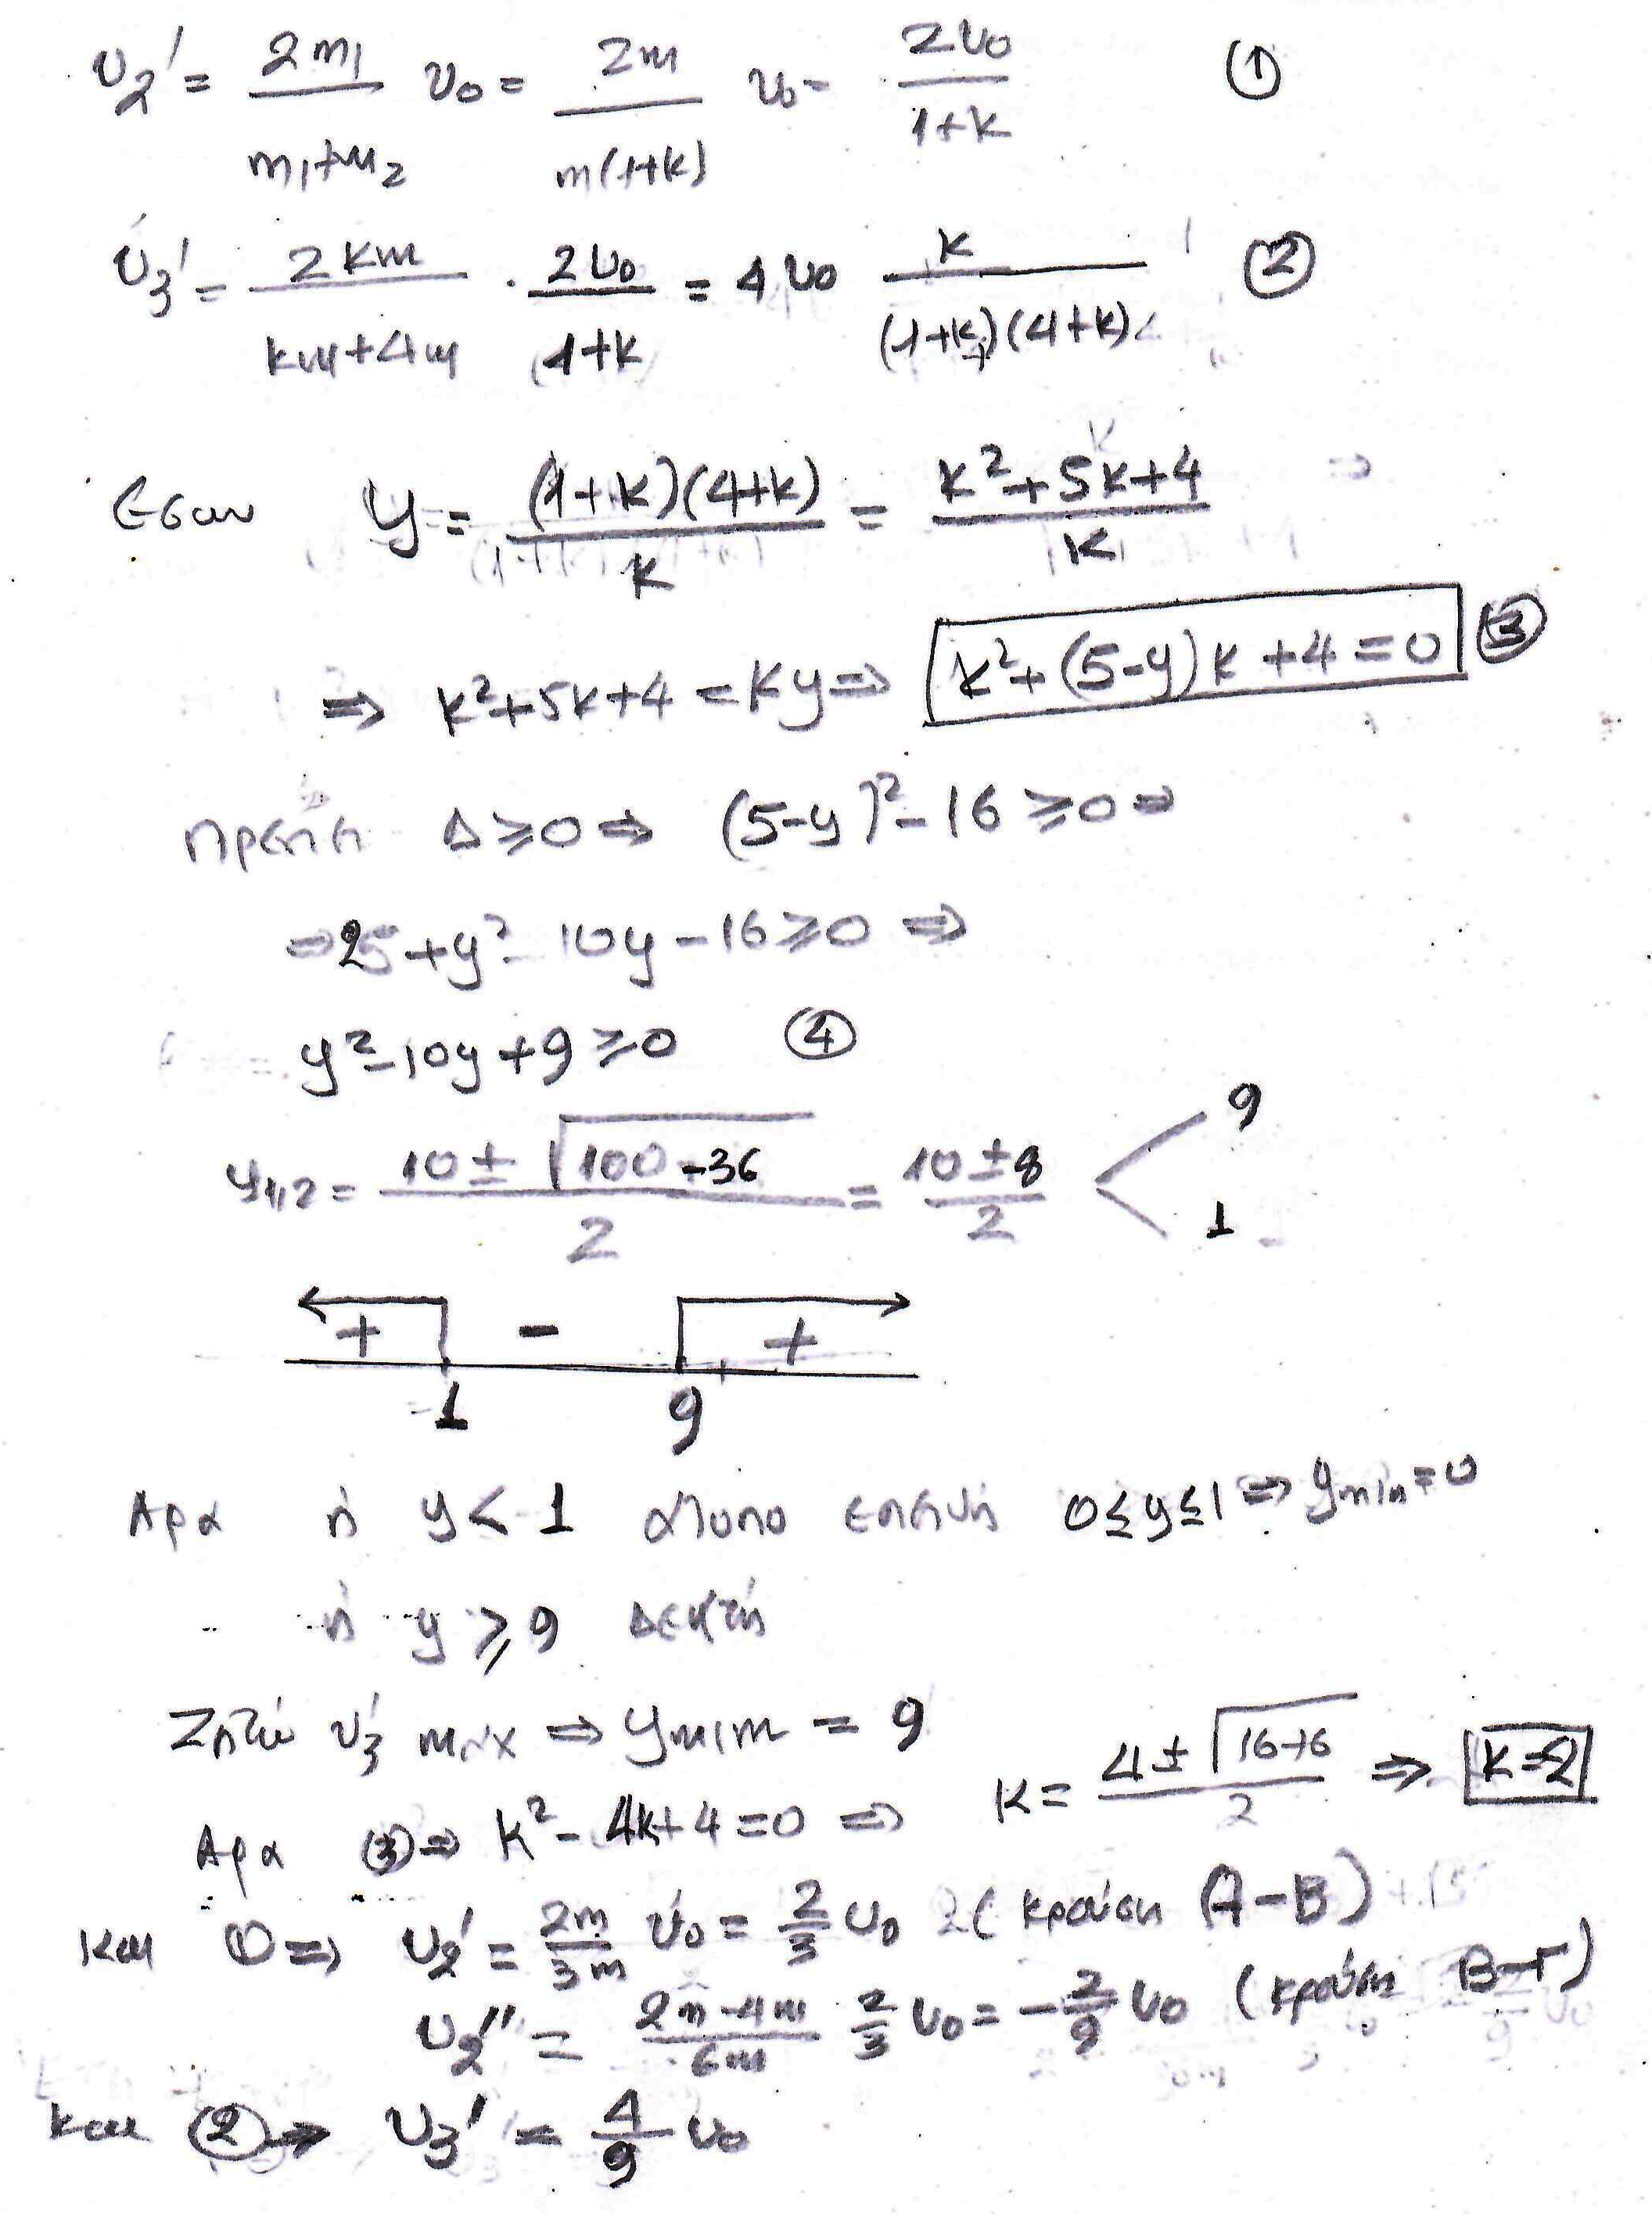 υ₂' = 2m₁/(m₁+m₂) υ₀ = 2m/(m(1+k)) υ₀ = 2υ₀/(1+k) ①
υ₃' = 2km/(km+4m) · 2υ₀/(1+k) = 4υ₀ k/((1+k)(4+k)) ②
Εστω y = (1+k)(4+k)/k = (k²+5k+4)/k
⇒ k²+5k+4 = ky ⇒ k²+(5-y)k+4=0 ③
πρεπει Δ≥0 ⇒ (5-y)²-16≥0 ⇒
⇒ 25+y²-10y-16≥0 ⇒
y²-10y+9≥0 ④
y₁,₂ = (10±√(100-36))/2 = (10±8)/2 < 9
1
+ - +
1 9
Αρα ή y<1 ατοπο επειδή 0≤y≤1 ⇒ ymin=0
ή y≥9 Δεκτή
Ζητώ υ₃' max ⇒ ymin = 9
Αρα ③⇒ k²-4k+4=0 ⇒ k = (4±√(16-16))/2 ⇒ k=2
και ①⇒ υ₂' = 2m/3m υ₀ = 2/3 υ₀ (κρούση Α-Β)
υ₂'' = (2m-4m)/6m 2/3 υ₀ = -2/9 υ₀ (κρούση Β-Γ)
και ②⇒ υ₃' = 4/9 υ₀